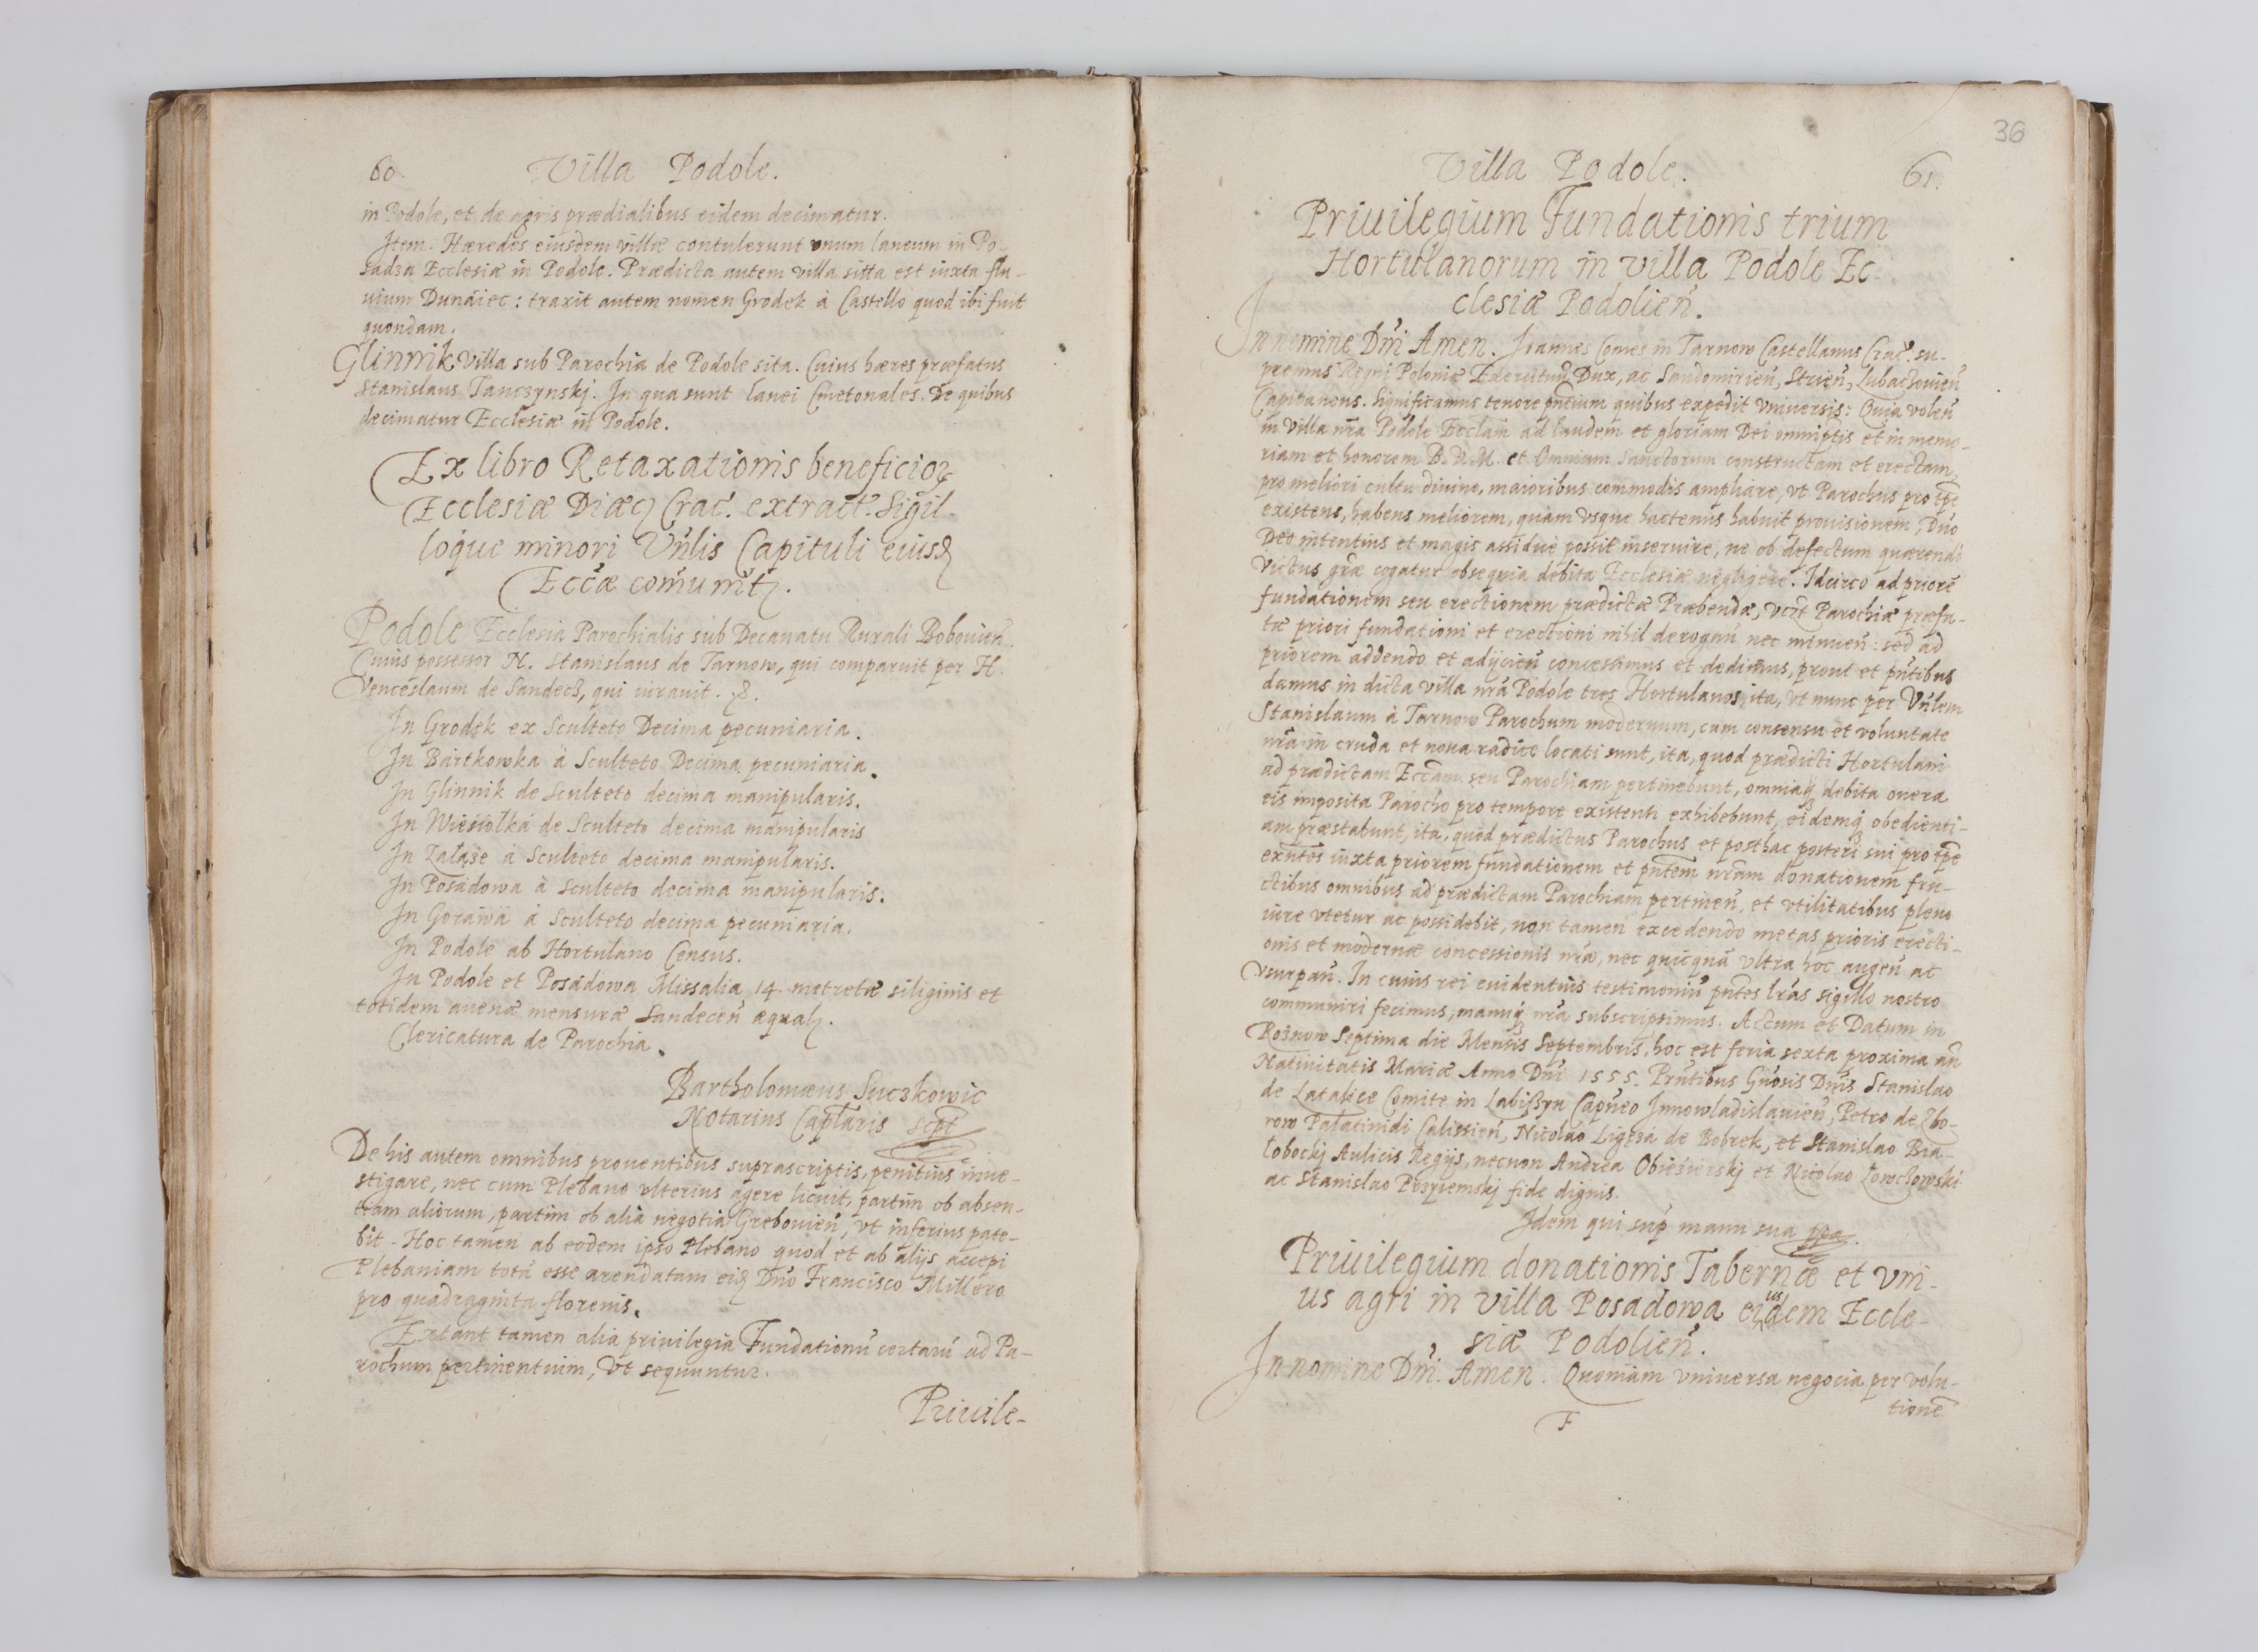 60. Villa Podole.
in Podole, et de agris prædialibus eidem decimatur.
Item. Hæredes eiusdem villæ contulerunt vnum laneum in Po-
sadza Ecclesiæ in Podole. Prædicta autem villa sitta est iuxta flu-
uium Dunáiec: traxit autem nomen Grodek à Castello quod ibi fuit
quondam.
Glinnik villa sub Parochia de Podole sita. Cuius hæres præfatus
Stanislaus Tanczynskj. In qua sunt lanei Cmetonales. De quibus
decimatur Ecclesiæ in Podole.
Ex libro Retaxationis beneficioꝝ
Ecclesiæ Diæcꝫ Crac̃. extract. Sigil-
loque minori Vñlis Capituli eiusꝺ
Eccæ com̃unitꝫ.
Podole Ecclesia Parochialis sub Decanatu Rurali Bobouien̄.
Cuius possessor N. Stanislaus de Tarnow, qui comparuit per H.
Venceslaum de Sandecz, qui iurauit. &.
In Grodek ex Sculteto Decima pecuniaria.
In Bártkowka à Sculteto Decima pecuniaria.
In Glinnik de Sculteto decima manipularis.
In Wiesiołká de Sculteto decima manipularis
In Załąże à Sculteto decima manipularis.
In Posádowa à Sculteto decima manipularis.
In Goráwá à Sculteto decima pecuniaria.
In Podole ab Hortulano Census.
In Podole et Posádowa Missalia 14. metretæ siliginis et
totidem auenæ mensuræ Sandecen̄ æqualꝫ.
Clericatura de Parochia.
Bartholomæus Suczkowic
Notarius Caplaris scpt
De his autem omnibus prouentibus suprascriptis, penitius inue-
stigare, nec cum Plebano vlterius agere licuit, partim ob absen-
tiam aliorum, partim ob alia negotia Grebouien̄, vt inferius pate-
bit. Hoc tamen ab eodem ipso Plebano quod et ab alijs accepi
Plebaniam totā esse arendatam eiꝺ Dño Francisco Millero
pro quadraginta florenis.
Extant tamen alia priuilegia Fundationū cortarū ad Pa-
rochum pertinentium, vt sequuntur.
Priuile-
36
Villa Podole. 61.
Priuilegium Fundationis trium
Hortulanorum in villa Podole Ec-
clesiæ Podolien̄.
In nomine Dñi Amen. Joannes Comes in Tarnow Castellanus Crac̃. su-
premus Regni Poloniæ Exercituū Dux, ac Sandomirien̄, Strien̄, Lubaczouien̄
Capitaneus. Significamus tenore pñtium quibus expedit vniuersis: Quia volen̄
in villa nrā Podole Ecclam ad laudem et gloriam Dei omniptis et in memo-
riam et honorem B. V. M. et Omnium Sanctorum constructam et erectam,
pro meliori cultu diuino, maioribus commodis ampliare, vt Parochus pro tp̃e
existens, habens meliorem, quàm vsque hactenus habuit prouisionem, Dño
Deo intentius et magis assiduè possit inseruire, ne ob defectum quærendi
victus grāe cogatur obsequia debita Ecclesiæ negligere. Idcirco ad priorē
fundationem seu erectionem prædictæ Præbendæ, vcr̃t Parochiæ præfa-
tæ priori fundationi et erectioni nihil derogan̄ nec minuen̄: sed ad
priorem addendo et adijcien̄ concessimus et dedimus, prout et pñtibus
damus in dicta villa nrā Podole tres Hortulanos, ita, vt nunc per Vñlem
Stanislaum à Tarnow Parochum modernum, cum consensu et voluntate
nrā in cruda et noua radice locati sunt, ita, quod prædicti Hortulani
ad prædictam Eccam seu Parochiam pertinebunt, omniaqꝫ debita onera
eis imposita Parocho pro tempore existenti exhibebunt, eidemqꝫ obedienti-
am præstabunt, ita, quod prædictus Parochus et posthac posteri sui pro tp̃e
exñtes iuxta priorem fundationem et pñtem nrām donationem fru-
ctibus omnibus ad prædictam Parochiam pertinen̄, et vtilitatibus pleno
iure vtetur ac possidebit, non tamen excedendo metas prioris erecti-
onis et modernæ concessionis nrāe, nec quicquā vltra hoc augen̄ ac
vsurpan̄. In cuius rei euidentius testimoniū pñtes lrās sigillo nostro
communiri fecimus, manuqꝫ nrā subscripsimus. Actum et Datum in
Rożnow Septima die Mensis Septembris, hoc est feria sexta proxima an̄
Natiuitatis Mariæ Anno Dñi 1555. Prñtibus Gñosis Dñis Stanislao
de Latalice Comite in Labiszyn Capñeo Innowladislauien̄, Petro de Zbo-
row Palatinidi Calissien̄, Nicolao Ligęzá de Bobrek, et Stanislao Bia-
łobockj Aulicis Regijs, necnon Andrea Obieśierskj et Nicolao Łowczowski
ac Stanislao Przyiemskj fide dignis.
Idem qui sup̃ manu sua ppa.
Priuilegium donationis Tabernæ et vni-
us agri in villa Posadowa eiusdem Eccle-
siæ Podolien̄.
In nomine Dñi. Amen. Quoniam vniuersa negocia per volu-
tionē
F